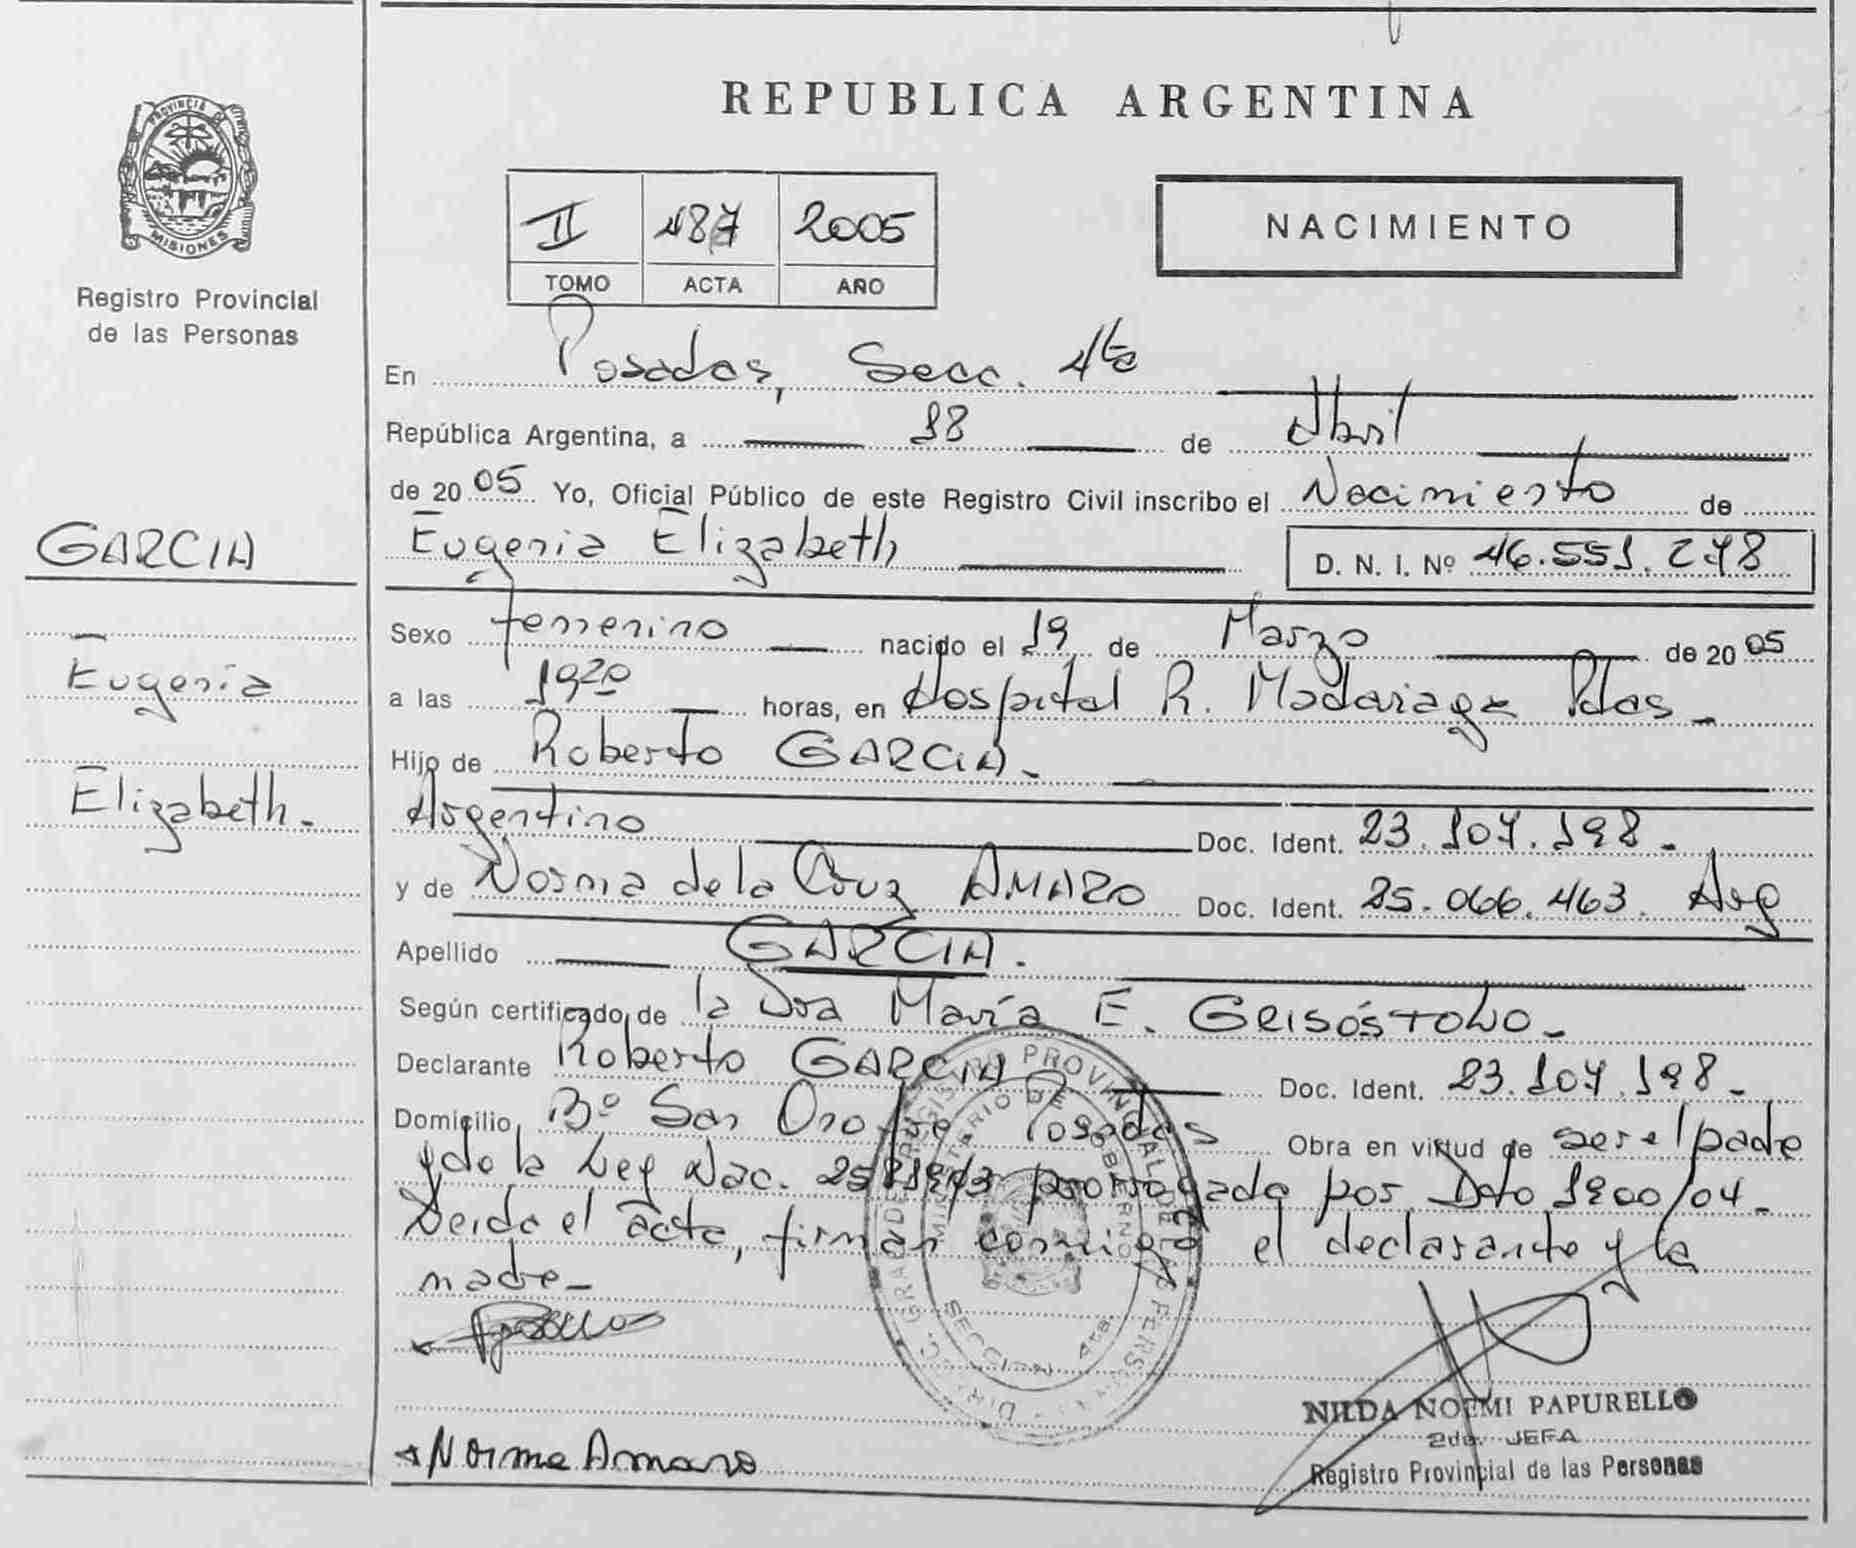 PROVINCIA DE
MISIONES
Registro Provincial
de las Personas
GARCIA
Eugenia
Elizabeth.-
REPUBLICA ARGENTINA
II 487 2005
TOMO ACTA AÑO
NACIMIENTO
En Posadas, Secc. 4ta
República Argentina, a 18 de Abril
de 2005 Yo, Oficial Público de este Registro Civil inscribo el Nacimiento de
Eugenia Elizabeth D. N. I. Nº 46.551.278
Sexo femenino nacido el 19 de Marzo de 2005
a las 1920 horas, en Hospital R. Madariaga Pdas -
Hijo de Roberto GARCIA.-
Argentino Doc. Ident. 23.107.198.-
y de Norma de la Cruz AMARO Doc. Ident. 25.066.463. Arg
Apellido GARCIA.
Según certificado de la Dra María E. GRISÓSTOMO.-
Declarante Roberto GARCIA Doc. Ident. 23.107.198.-
Domicilio Bº San Onofre Posadas Obra en virtud de ser el padre
y de la Ley Nac. 25819/03 prorrogada por Dto 1900/04.-
Leida el acta, firman conmigo el declarante y la
madre-
Norma Amaro
REGISTRO PROVINCIAL DE LAS PERSONAS
MINISTERIO DE GOBIERNO
SECCION 4ta.
NILDA NOEMI PAPURELLO
2da. JEFA
Registro Provincial de las Personas